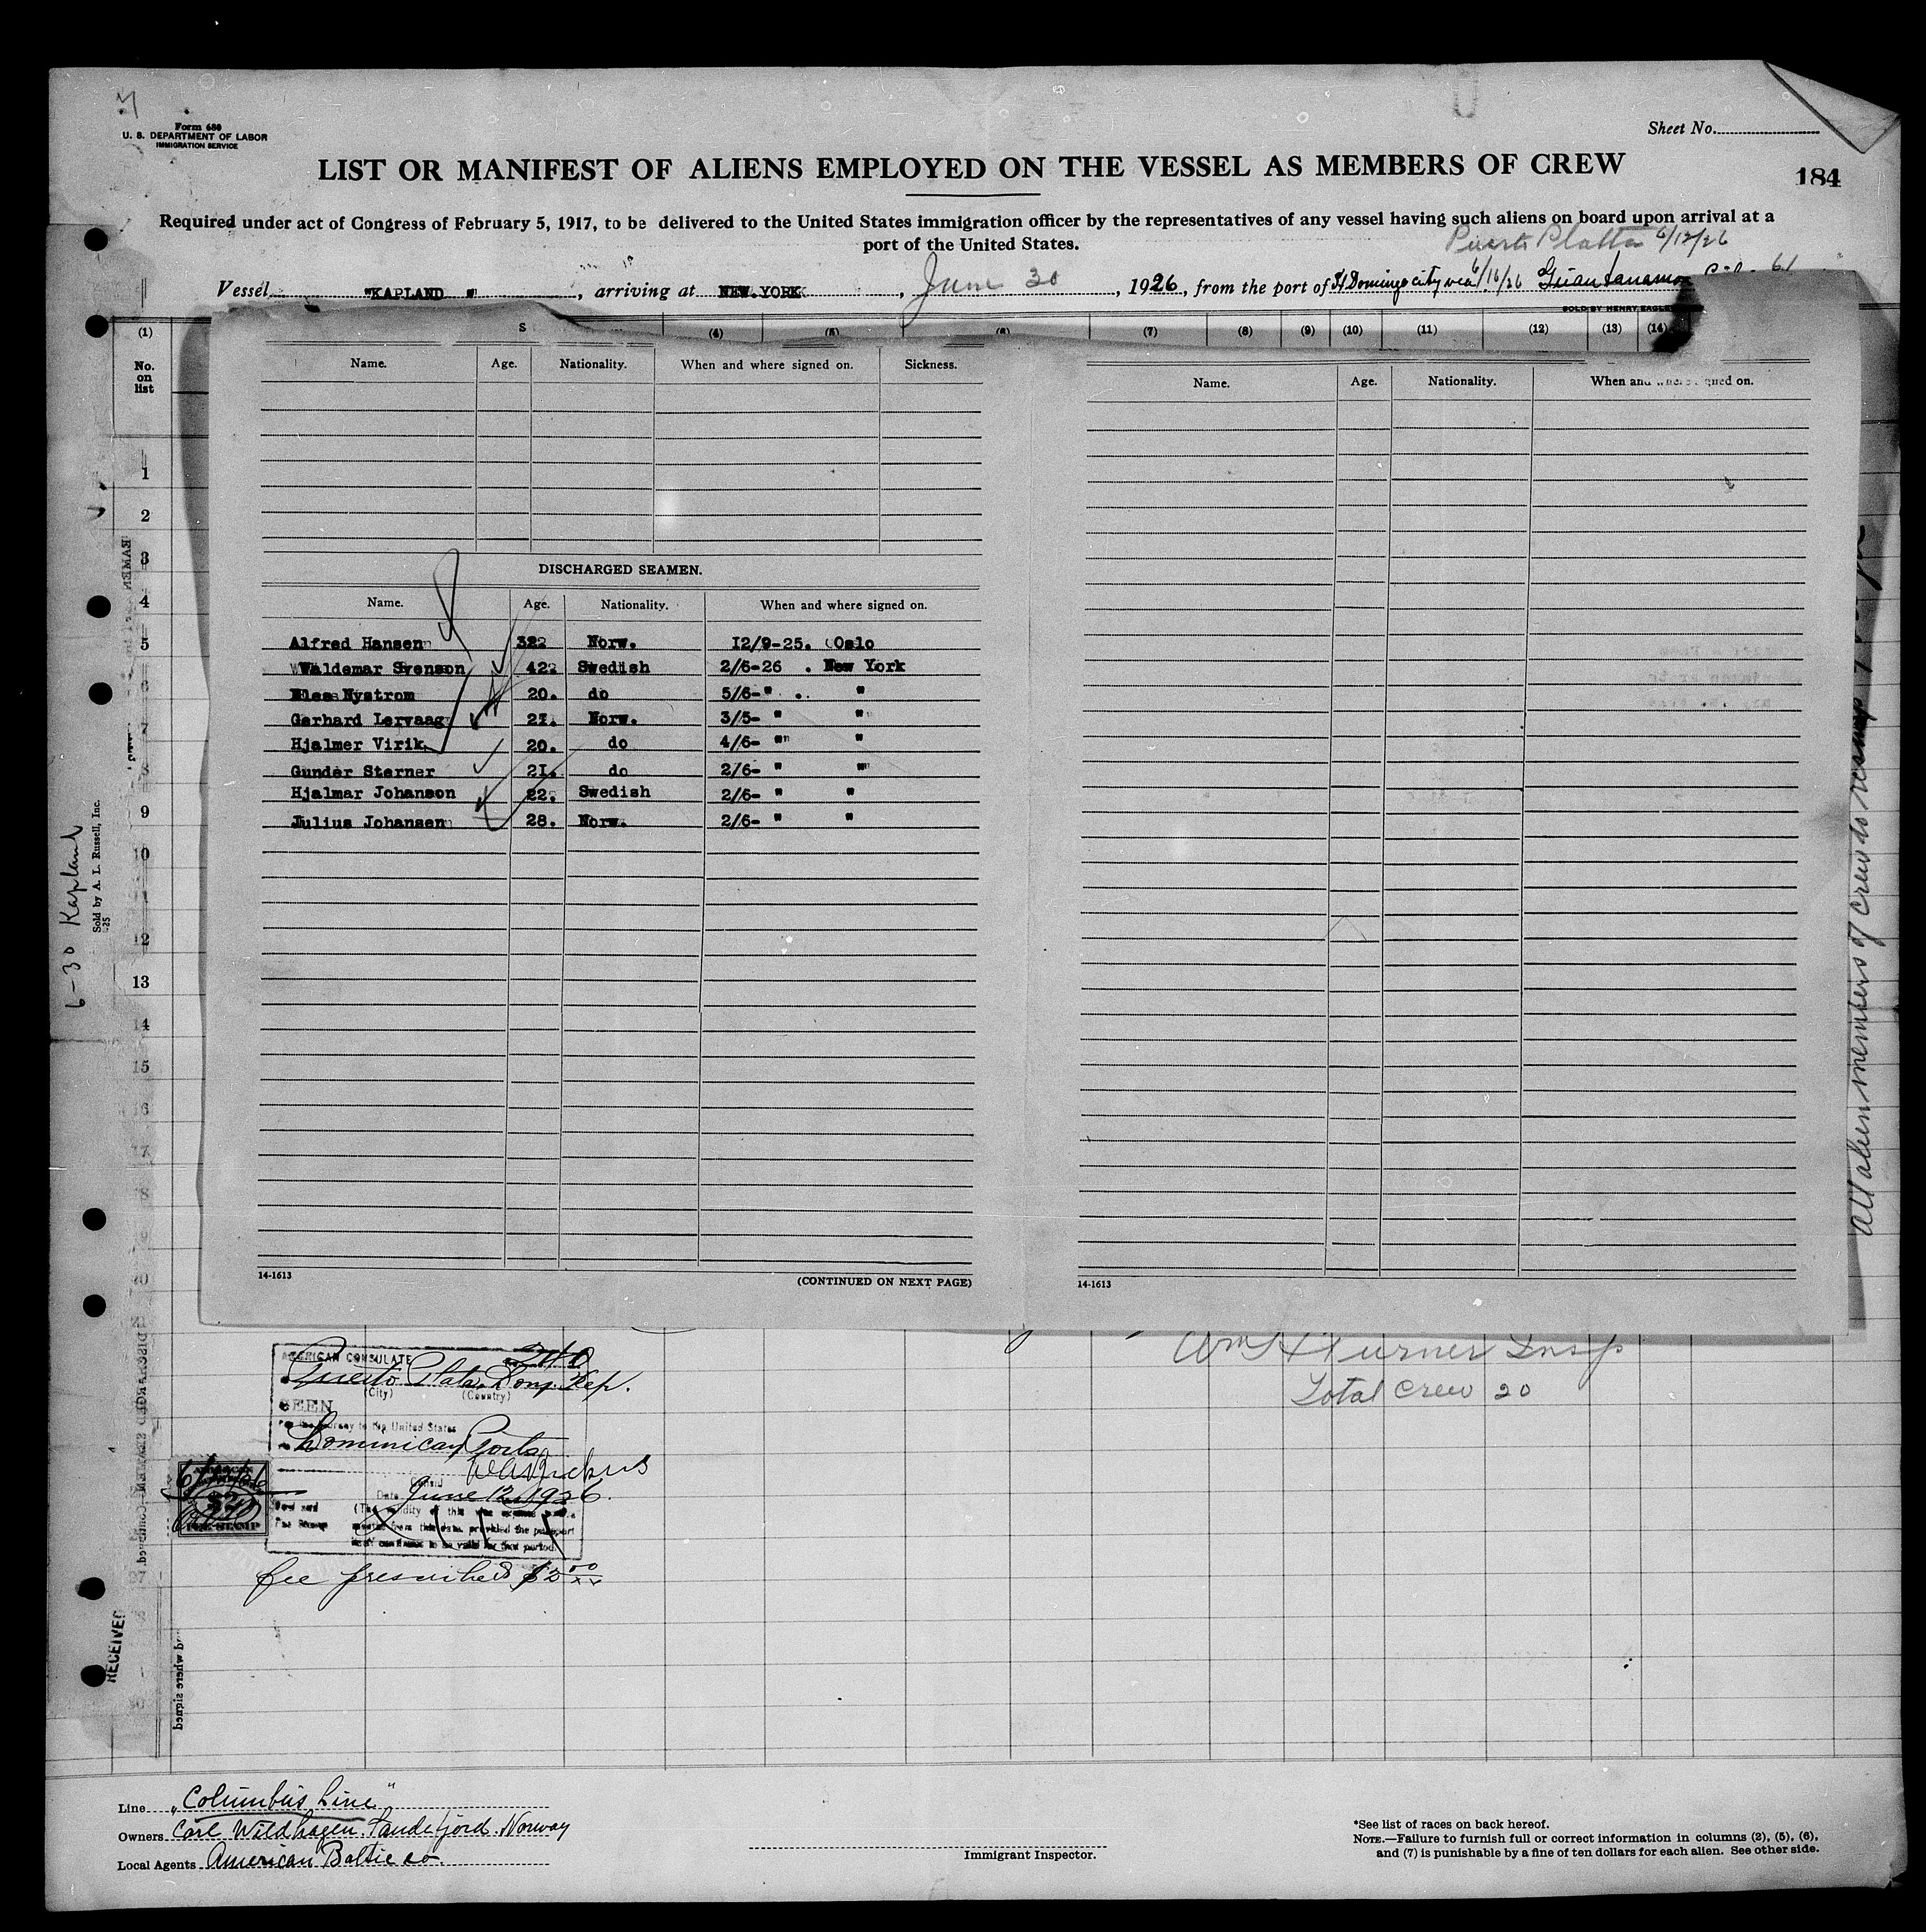 Form 680
U. S. DEPARTMENT OF LABOR
IMMIGRATION SERVICE
Sheet No.
LIST OR MANIFEST OF ALIENS EMPLOYED ON THE VESSEL AS MEMBERS OF CREW
184
Required under act of Congress of February 5, 1917, to be delivered to the United States immigration officer by the representatives of any vessel having such aliens on board upon arrival at a
port of the United States.
Puerto Platta 6/12/26
Vessel "KAPLAND", arriving at NEW.YORK, June 30, 1926, from the port of St Domingo city via 6/16/26 Guantanamo
SOLD BY HENRY EAGLE
(1) (4) (5) (6) (7) (8) (9) (10) (11) (12) (13) (14)
No. on list
Name. Age. Nationality. When and where signed on. Sickness.
Name. Age. Nationality. When and where signed on.
DISCHARGED SEAMEN.
Name. Age. Nationality. When and where signed on.
Alfred Hansen 32 Norw. 12/9-25. Oslo
Waldemar Svenson 42 Swedish 2/6-26 . New York
Nystrom 20. do 5/6- " . "
Gerhard Lervaag 21. Norw. 3/5- " "
Hjalmer Virik 20. do 4/6- " "
Gunder Sterner 21. do 2/6- " "
Hjalmar Johanson 22. Swedish 2/6- " "
Julius Johansen 28. Norw. 2/6- " "
1
2
3
4
5
6
7
8
9
10
12
13
14
15
16
17
14-1613
(CONTINUED ON NEXT PAGE)
14-1613
6-30 Kapland
Sold by A. L. Russell, Inc.
All alien members of crew to
RECEIVED
AMERICAN CONSULATE
240
Puerto Plata, Dom. Rep.
(City) (Country)
SEEN
For the journey to the United States
Dominican Ports
Consul
Date June 12, 1926.
fee prescribed $2.00
Wm H Turner Insp
Total Crew 20
Line "Columbus Line"
Owners Carl Wildhagen. Sandefjord. Norway
Local Agents American Baltic co.
Immigrant Inspector.
*See list of races on back hereof.
NOTE.—Failure to furnish full or correct information in columns (2), (5), (6),
and (7) is punishable by a fine of ten dollars for each alien. See other side.